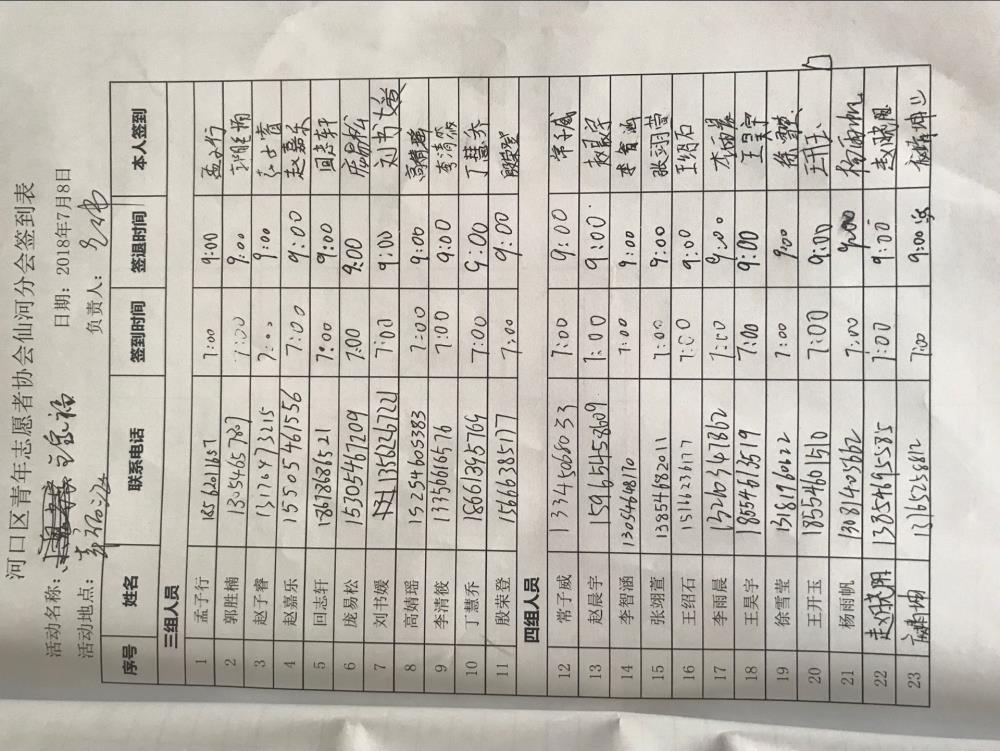 河口区青年志愿者协会仙河分会签到表
活动名称: 日期: 2018年7月8日
活动地点: 负责人:
序号 姓名 联系电话 签到时间 签退时间 本人签到
三组人员
1 孟子行 18562011687 7:00 9:00 孟子行
2 郭胜楠 13054657807 7:00 9:00 郭胜楠
3 赵子睿 15170473215 7:00 9:00
4 赵嘉乐 15505461556 7:00 9:00 赵嘉乐
5 回志轩 13678686521 7:00 9:00 回志轩
6 庞易松 15305467209 7:00 9:00 庞易松
7 刘书媛 13562267221 7:00 9:00 刘书媛
8 高婧瑶 15254605383 7:00 9:00 高婧瑶
9 李清筱 13356616576 7:00 9:00 李清筱
10 丁慧乔 18661365764 7:00 9:00 丁慧乔
11 殷荣登 15666385177 7:00 9:00 殷荣登
四组人员
12 常子威 13345068033 7:00 9:00 常子威
13 赵晨宇 15965458609 7:00 9:00 赵晨宇
14 李智涵 13054660870 7:00 9:00 李智涵
15 张翊萱 13854682011 7:00 9:00 张翊萱
16 王绍石 15166236177 7:00 9:00 王绍石
17 李雨晨 13260341862 7:00 9:00 李雨晨
18 王昊宇 18554613519 7:00 9:00 王昊宇
19 徐雪莹 13181960622 7:00 9:00 徐雪莹
20 王开玉 18554601510 7:00 9:00 王开玉
21 杨雨帆 13081405662 7:00 9:00 杨雨帆
22 赵晓胜 13854695585 7:00 9:00 赵晓胜
23 坤 13165258812 7:00 9:00 坤